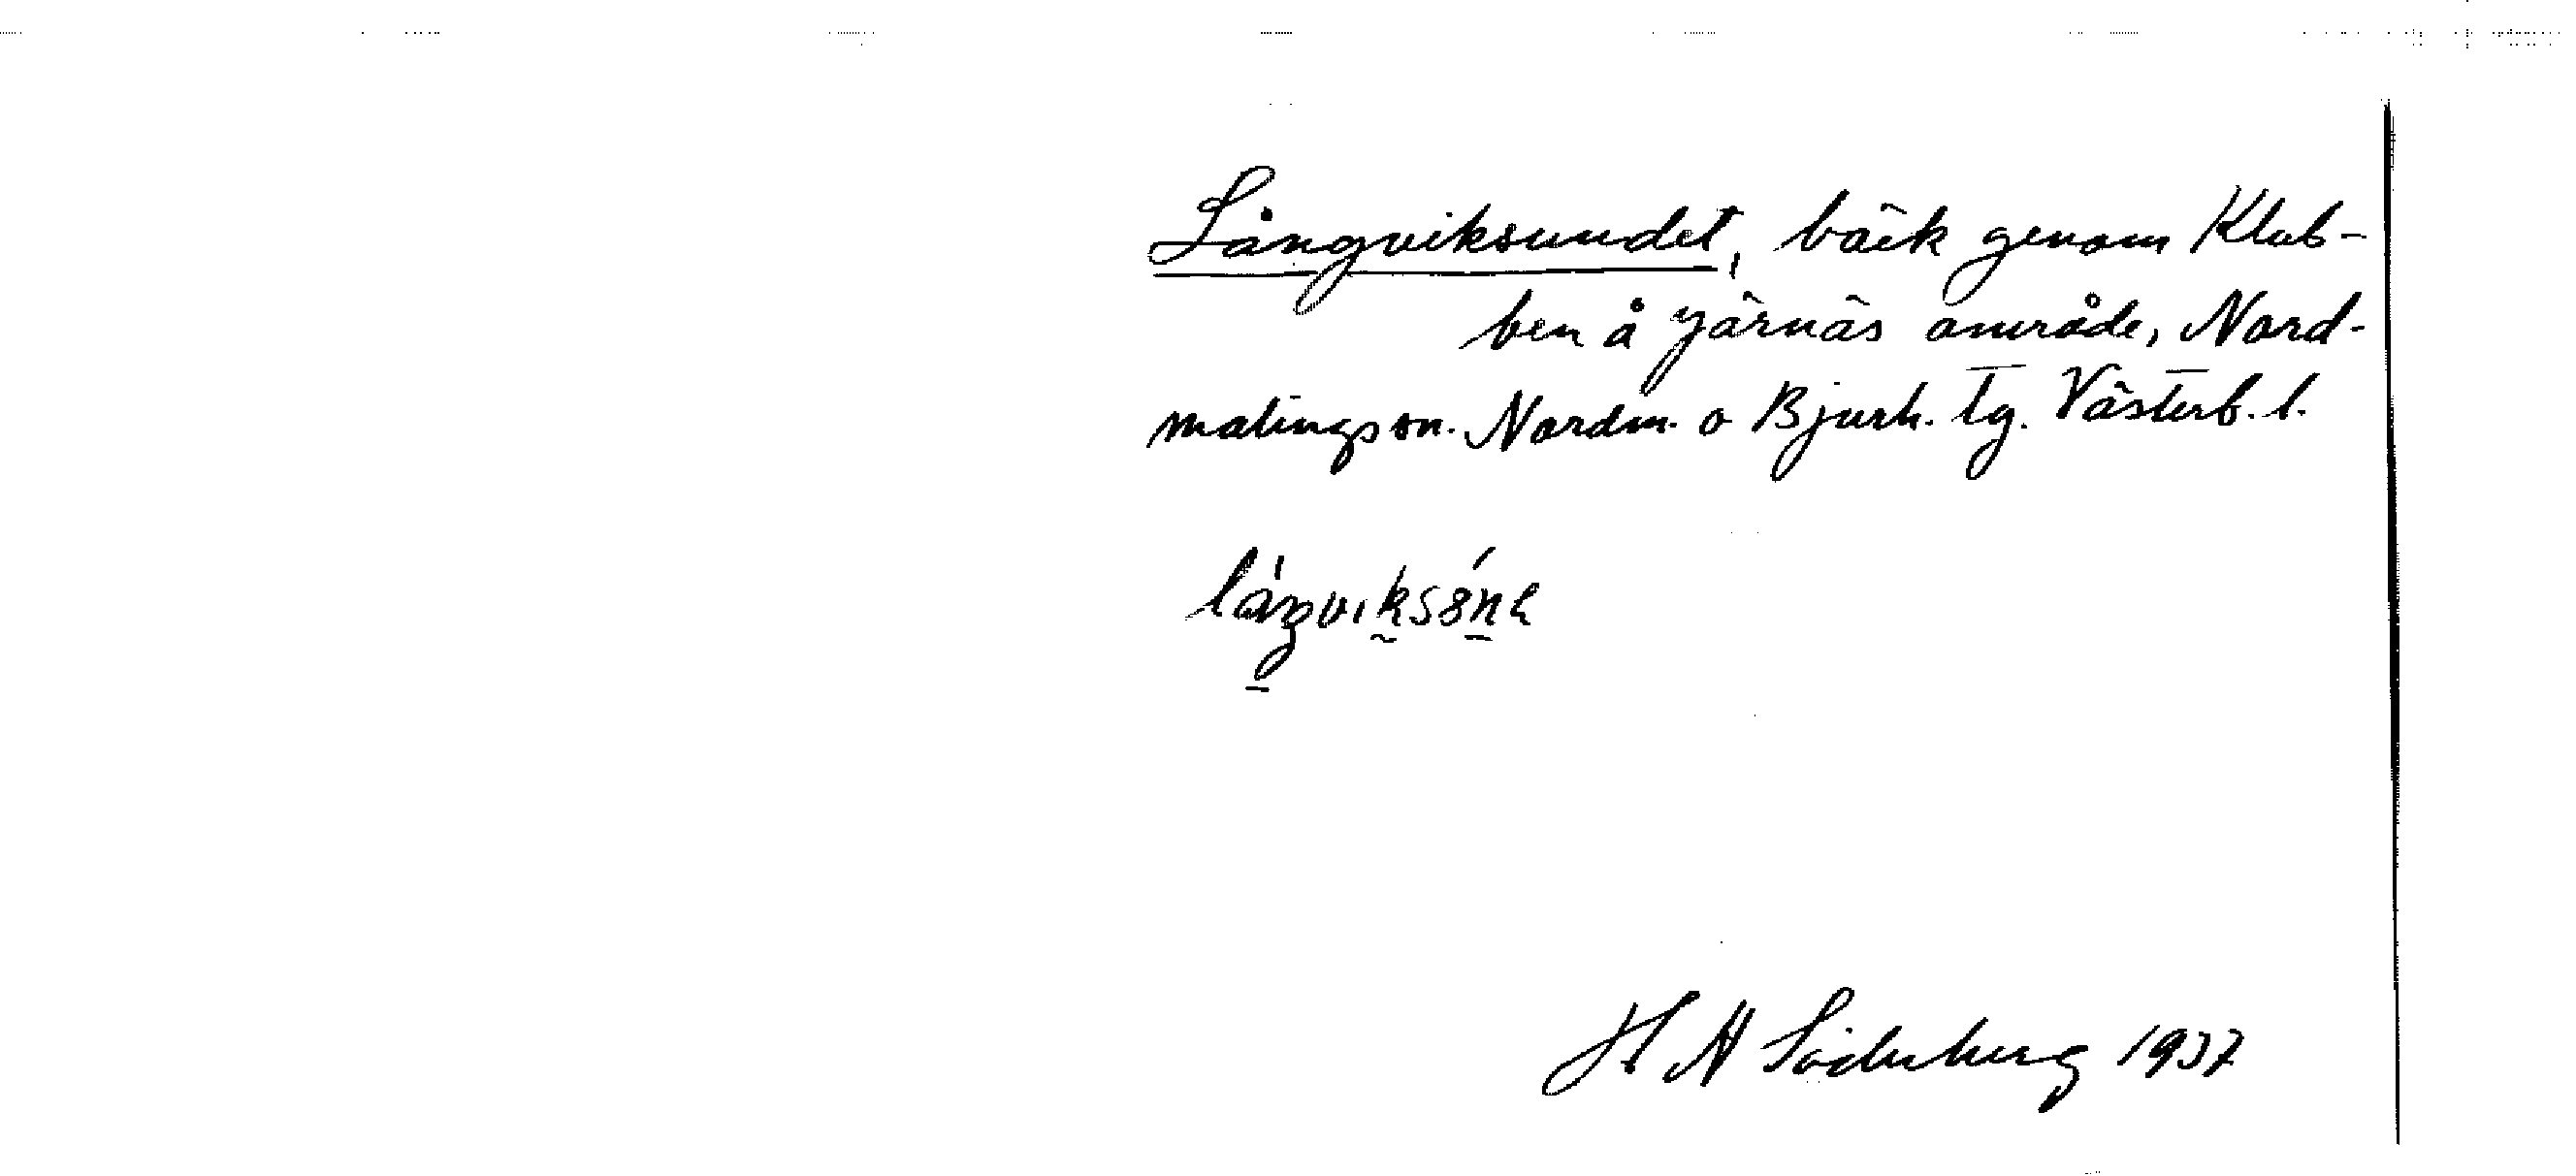 Långviksundet, bäck genom Klub-
ben å Järnäs område, Nord-
malings sn. Nordm. o Bjurh. tg. Västerb. l.
H N Söderberg 1937